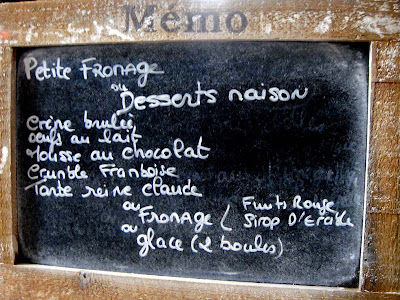 Mémo
Petite FROMAGE
ou
Desserts maison
Crème brulée
Oeufs au lait
Mousse au chocolat
Crumble Framboise
Tarte reine claude
ou FROMAGE ( Fruits Rouge
Sirop D'Erable
ou glace (2 boules)